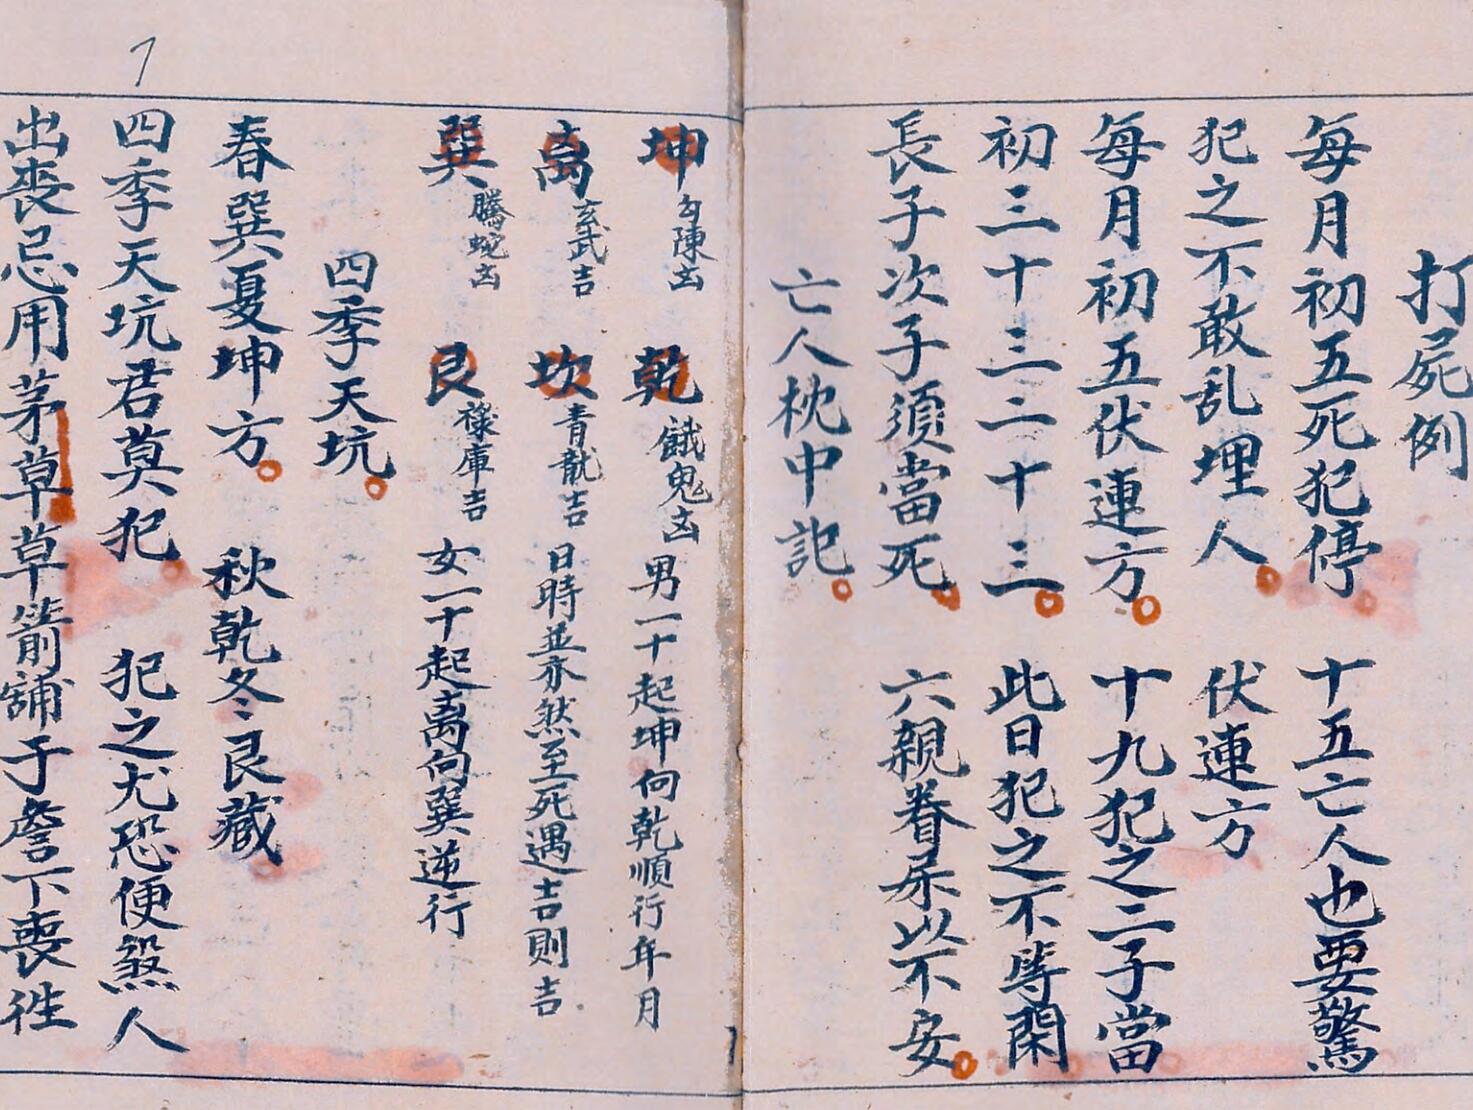 打屍例
每月初五死犯停　十五亡人也要驚
犯之不敢乱埋人　伏連方
每月初五伏連方　十九犯之二子當
初三十三二十三　此日犯之不等閑
長子次子須當死　六親眷不安
亡人枕中記
坤　勾陳凶　乾　餓鬼凶　男一十起坤向乾順行年月
离　玄武吉　坎　青龍吉　日時並亦然至死遇吉則吉
巽　騰蛇凶　艮　祿庫吉　女一十起离向巽逆行
四季天坑
春巽夏坤方　秋乾冬艮藏
四季天坑君莫犯　犯之尤恐便煞人
出丧忌用茅草草箭鋪于簷下喪徃
7